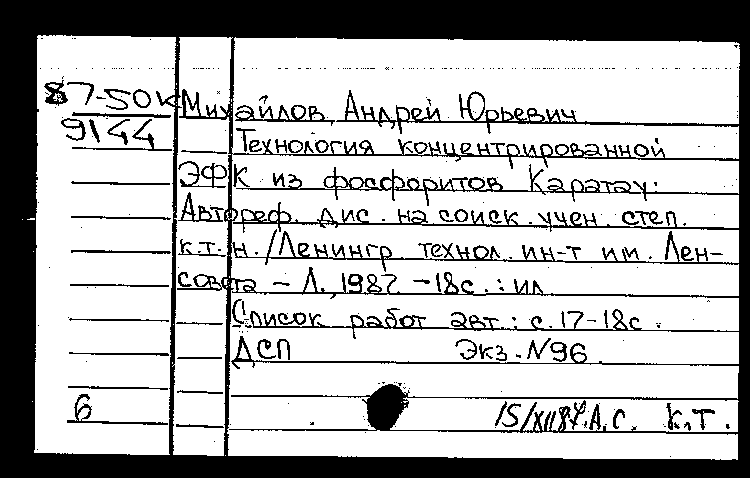 87-50К Михайлов, Андрей Юрьевич
9144
Технология концентрированной
ЭФК из фосфоритов Каратау:
Автореф. дис. на соиск. учен. степ.
к.т.н. /Ленингр. технол. ин-т им. Лен-
совета - Л., 1987 -18с. : ил
Список работ авт.: с.17-18с.
ДСП Экз. N96.
6 15/XII87. А.С. К.Т.